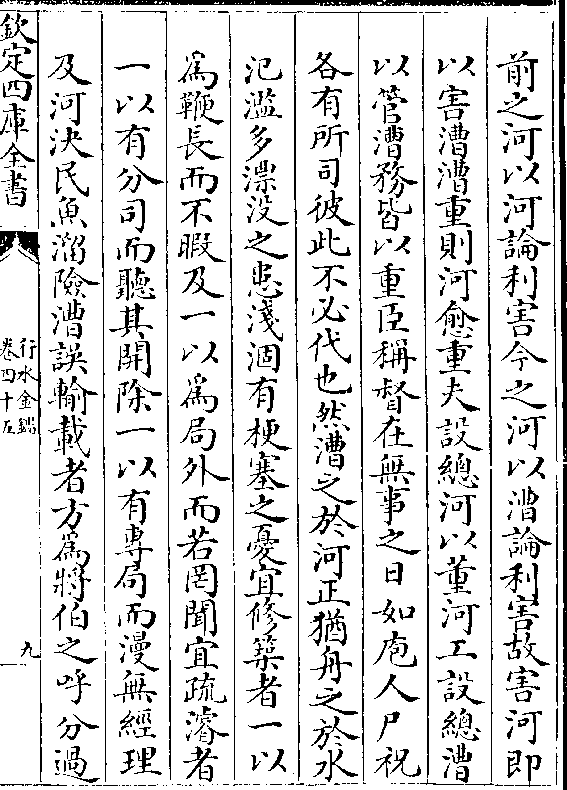 前之河以河論利害今之河以漕論利害故害河即
以害漕漕重則河愈重夫設總河以董河工設總漕
以管漕務皆以重臣稱督在無事之日如庖人尸祝
各有所司彼此不必代也然漕之於河正猶舟之於水
氾濫多漂没之患淺涸有梗塞之憂宜修築者一以
為鞭長而不暇及一以為局外而若罔聞宜疏濬者
一以有分司而聽其開除一以有專局而漫無經理
及河決民魚溜險漕誤輸載者方為將伯之呼分過
欽定四庫全書
行水金鑑
卷四十五
九